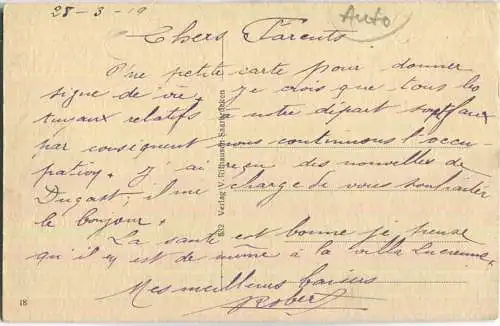 28-3-19
Auto
Chers Parents
Une petite carte pour donner
signe de vie. je crois que tous les
tuyaux relatifs à notre départ sont faux
par conséquent nous continuons l'occu-
pation. J'ai reçu des nouvelles de
Dugast, il me charge de vous souhaiter
le bonjour.
La santé est bonne je pense
qu'il en est de même à la villa Lucienne.
Mes meilleurs baisers
Robert
802 Verlag V. Rithausen Saarbrücken
18